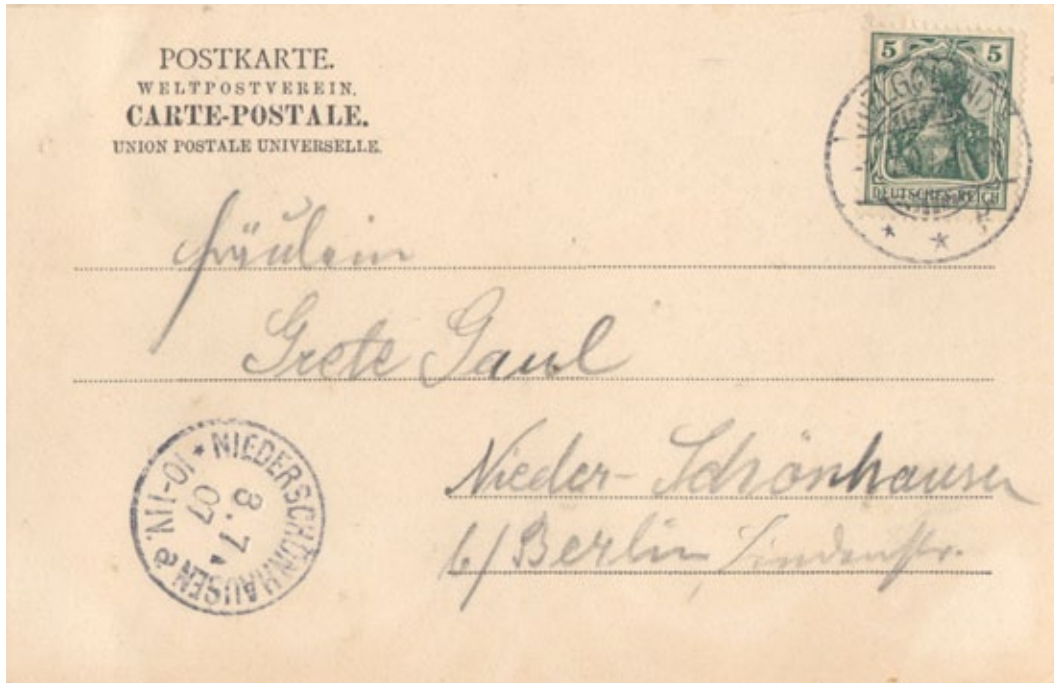 POSTKARTE.
WELTPOSTVEREIN.
CARTE-POSTALE.
UNION POSTALE UNIVERSELLE.
5 5
DEUTSCHES REICH
* *
Fräulein
Grete Gaul
Nieder-Schönhausen
b/Berlin Lindenstr.
* NIEDERSCHÖNHAUSEN a
8.7
07
10-11N.